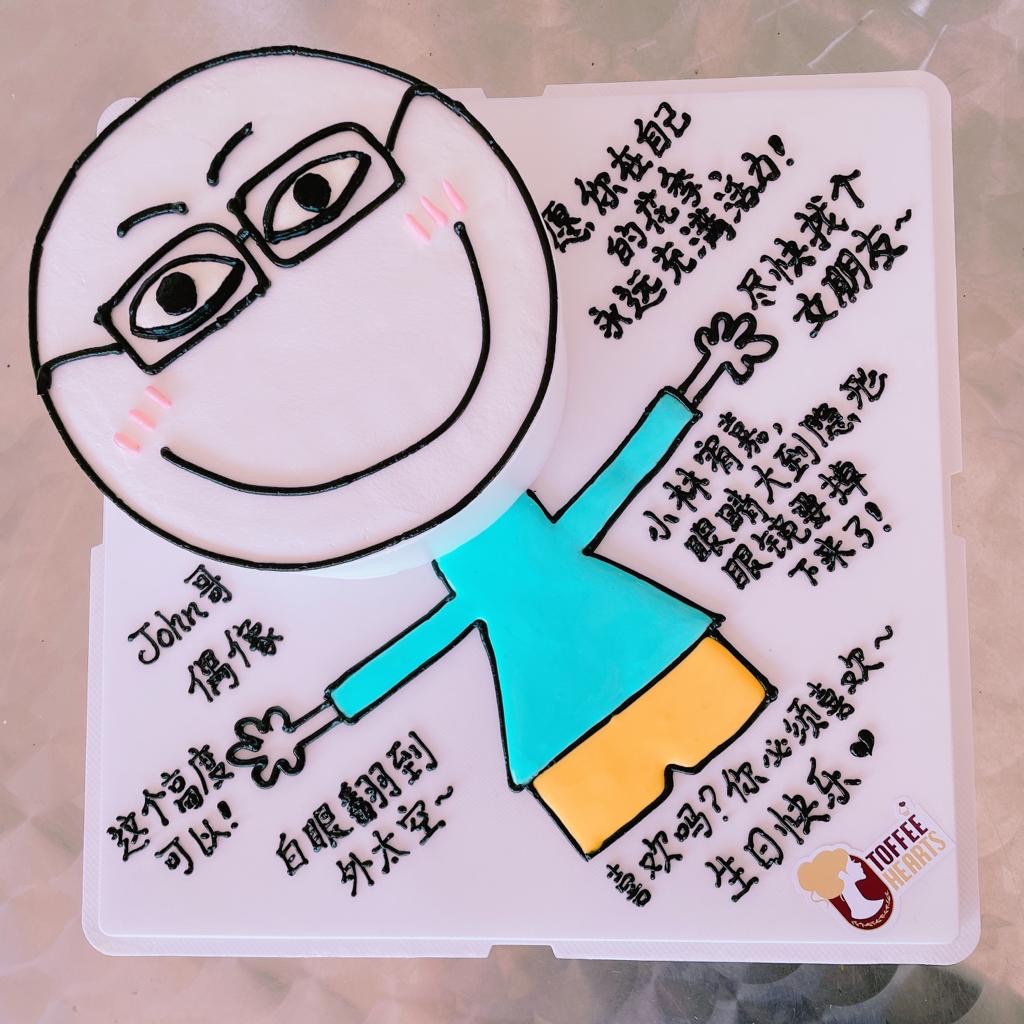 愿你在自己
的花季，
永远充满活力！
尽快找个
女朋友~
小林宥嘉，
眼睛大到隐形
眼镜要掉
下来了！
John哥
偶像
这个高度
可以！
白眼翻到
外太空~
喜欢吗？你必须喜欢~
生日快乐
TOFFEE
HEARTS